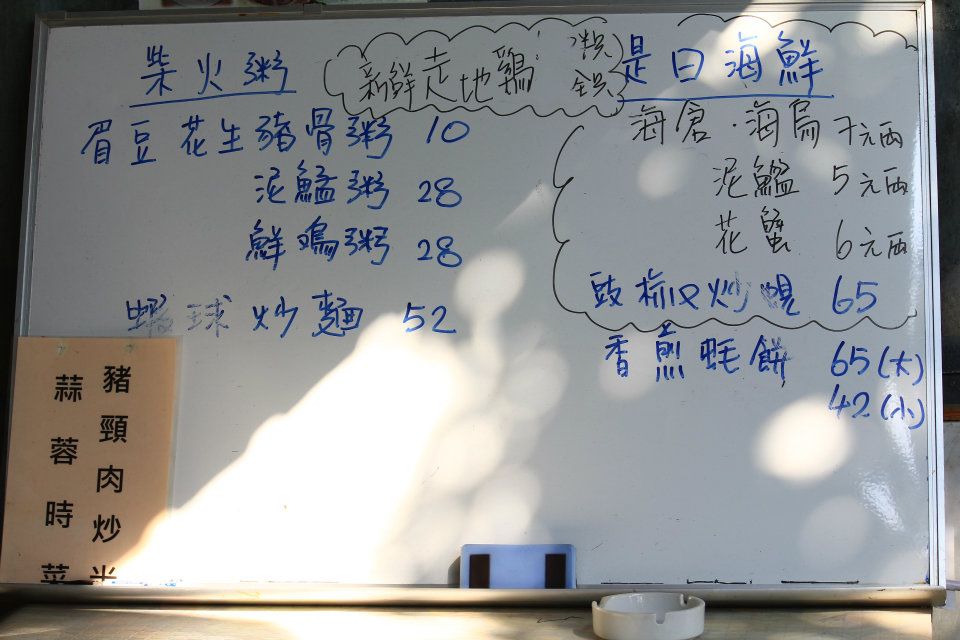 柴火粥
眉豆花生豬骨粥 10
泥鯭粥 28
鮮鳮粥 28
蝦球炒麵 52
新鮮走地鷄
是日海鮮
海倉·海烏 7元両
泥鯭 5元両
花蟹 6元両
豉椒炒蜆 65
香煎蚝餅 65(大)
42(小)
豬頸肉炒米
蒜蓉時菜